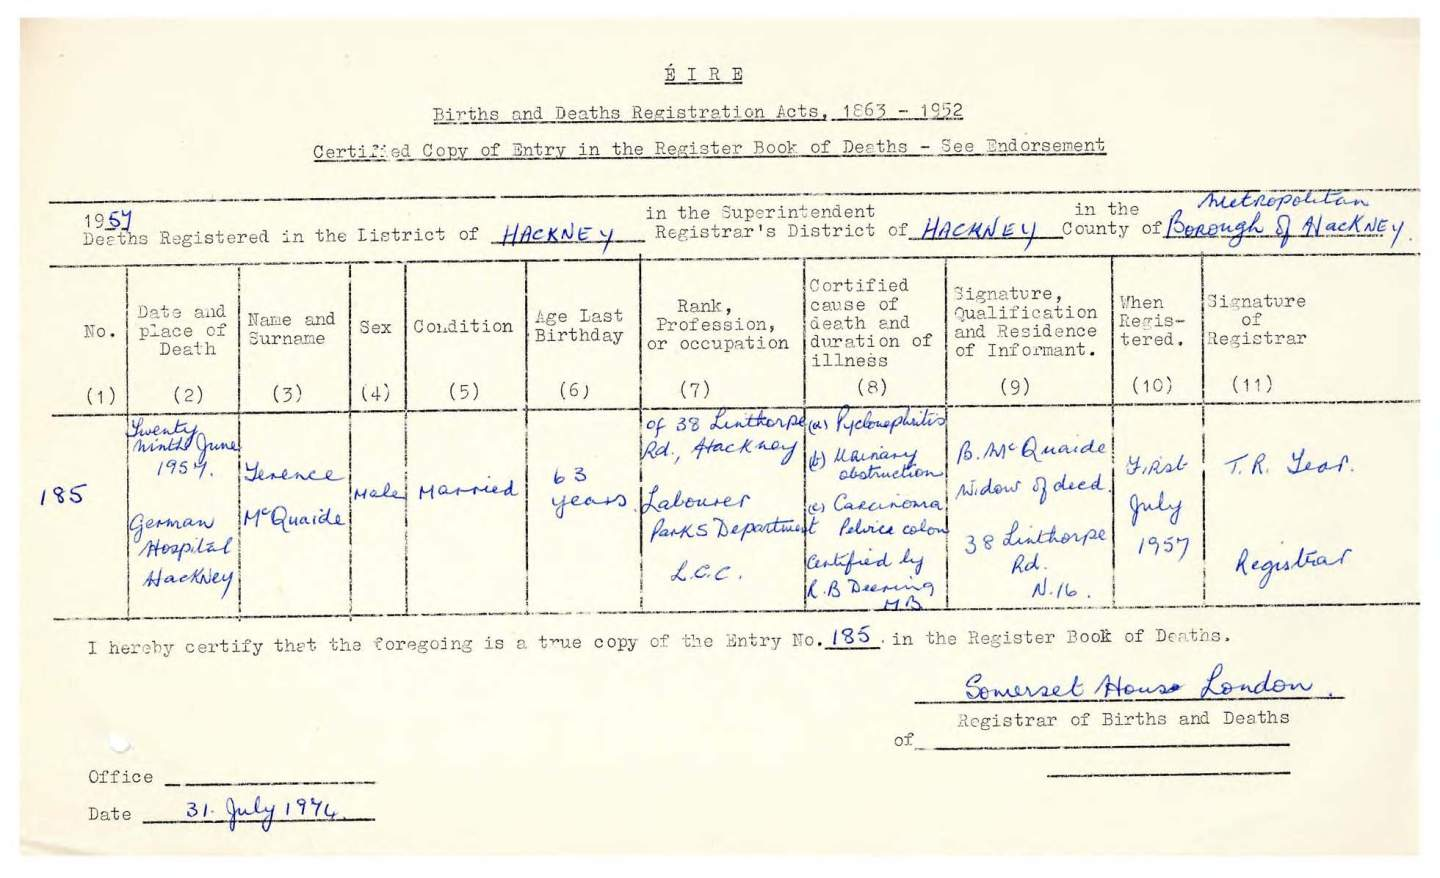 ÉIRE
Births and Deaths Registration Acts, 1863 - 1952
Certified Copy of Entry in the Register Book of Deaths - See Endorsement
1957
Deaths Registered in the District of HACKNEY
in the Superintendent
Registrar's District of HACKNEY
in the
County of Metropolitan
Borough of Hackney.
No.
(1)
Date and
place of
Death
(2)
Name and
Surname
(3)
Sex
(4)
Condition
(5)
Age Last
Birthday
(6)
Rank,
Profession,
or occupation
(7)
Cortified
cause of
death and
duration of
illness
(8)
Signature,
Qualification
and Residence
of Informant.
(9)
When
Regis-
tered.
(10)
Signature
of
Registrar
(11)
185
Twenty
ninth June
1957.
German
Hospital
Hackney
Terence
McQuaide
Male
Married
63
years.
of 38 Linthorpe
Rd., Hackney
Labourer
Parks Department
L.C.C.
(a) Pyelonephritis
(b) Urinary
obstruction
(c) Carcinoma
Pelvice colon
Certified by
R.B Deering
MB
B. McQuaide
Widow of decd.
38 Linthorpe
Rd.
N.16.
First
July
1957
T.R. Tear.
Registrar
I hereby certify that the foregoing is a true copy of the Entry No. 185. in the Register Book of Deaths.
Somerset House London.
Registrar of Births and Deaths
of
Office
Date 31. July 1974.